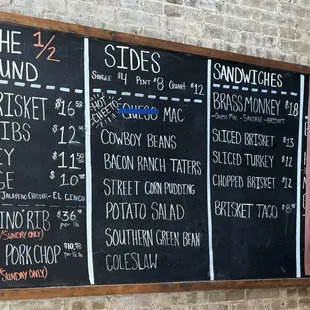 HE 1/2
UND
BRISKET $16.50
IBS $12
EY $11.50
GE $10
JALAPENO CHEDDAR - EL GINCO
INO' RIB $36
per lb
SUNDAY ONLY)
PORKCHOP $10.98
per ½ lb
(SUNDAY ONLY)
SIDES
SINGLE $4 PINT $8 QUART $12
HOT CHEETO
QUESO MAC
COWBOY BEANS
BACON RANCH TATERS
STREET CORN PUDDING
POTATO SALAD
SOUTHERN GREEN BEAN
COLESLAW
SANDWICHES
BRASS MONKEY $18
QUESO MAC - SAUSAGE - BRISKET
SLICED BRISKET $13
SLICED TURKEY $12
CHOPPED BRISKET $12
BRISKET TACO